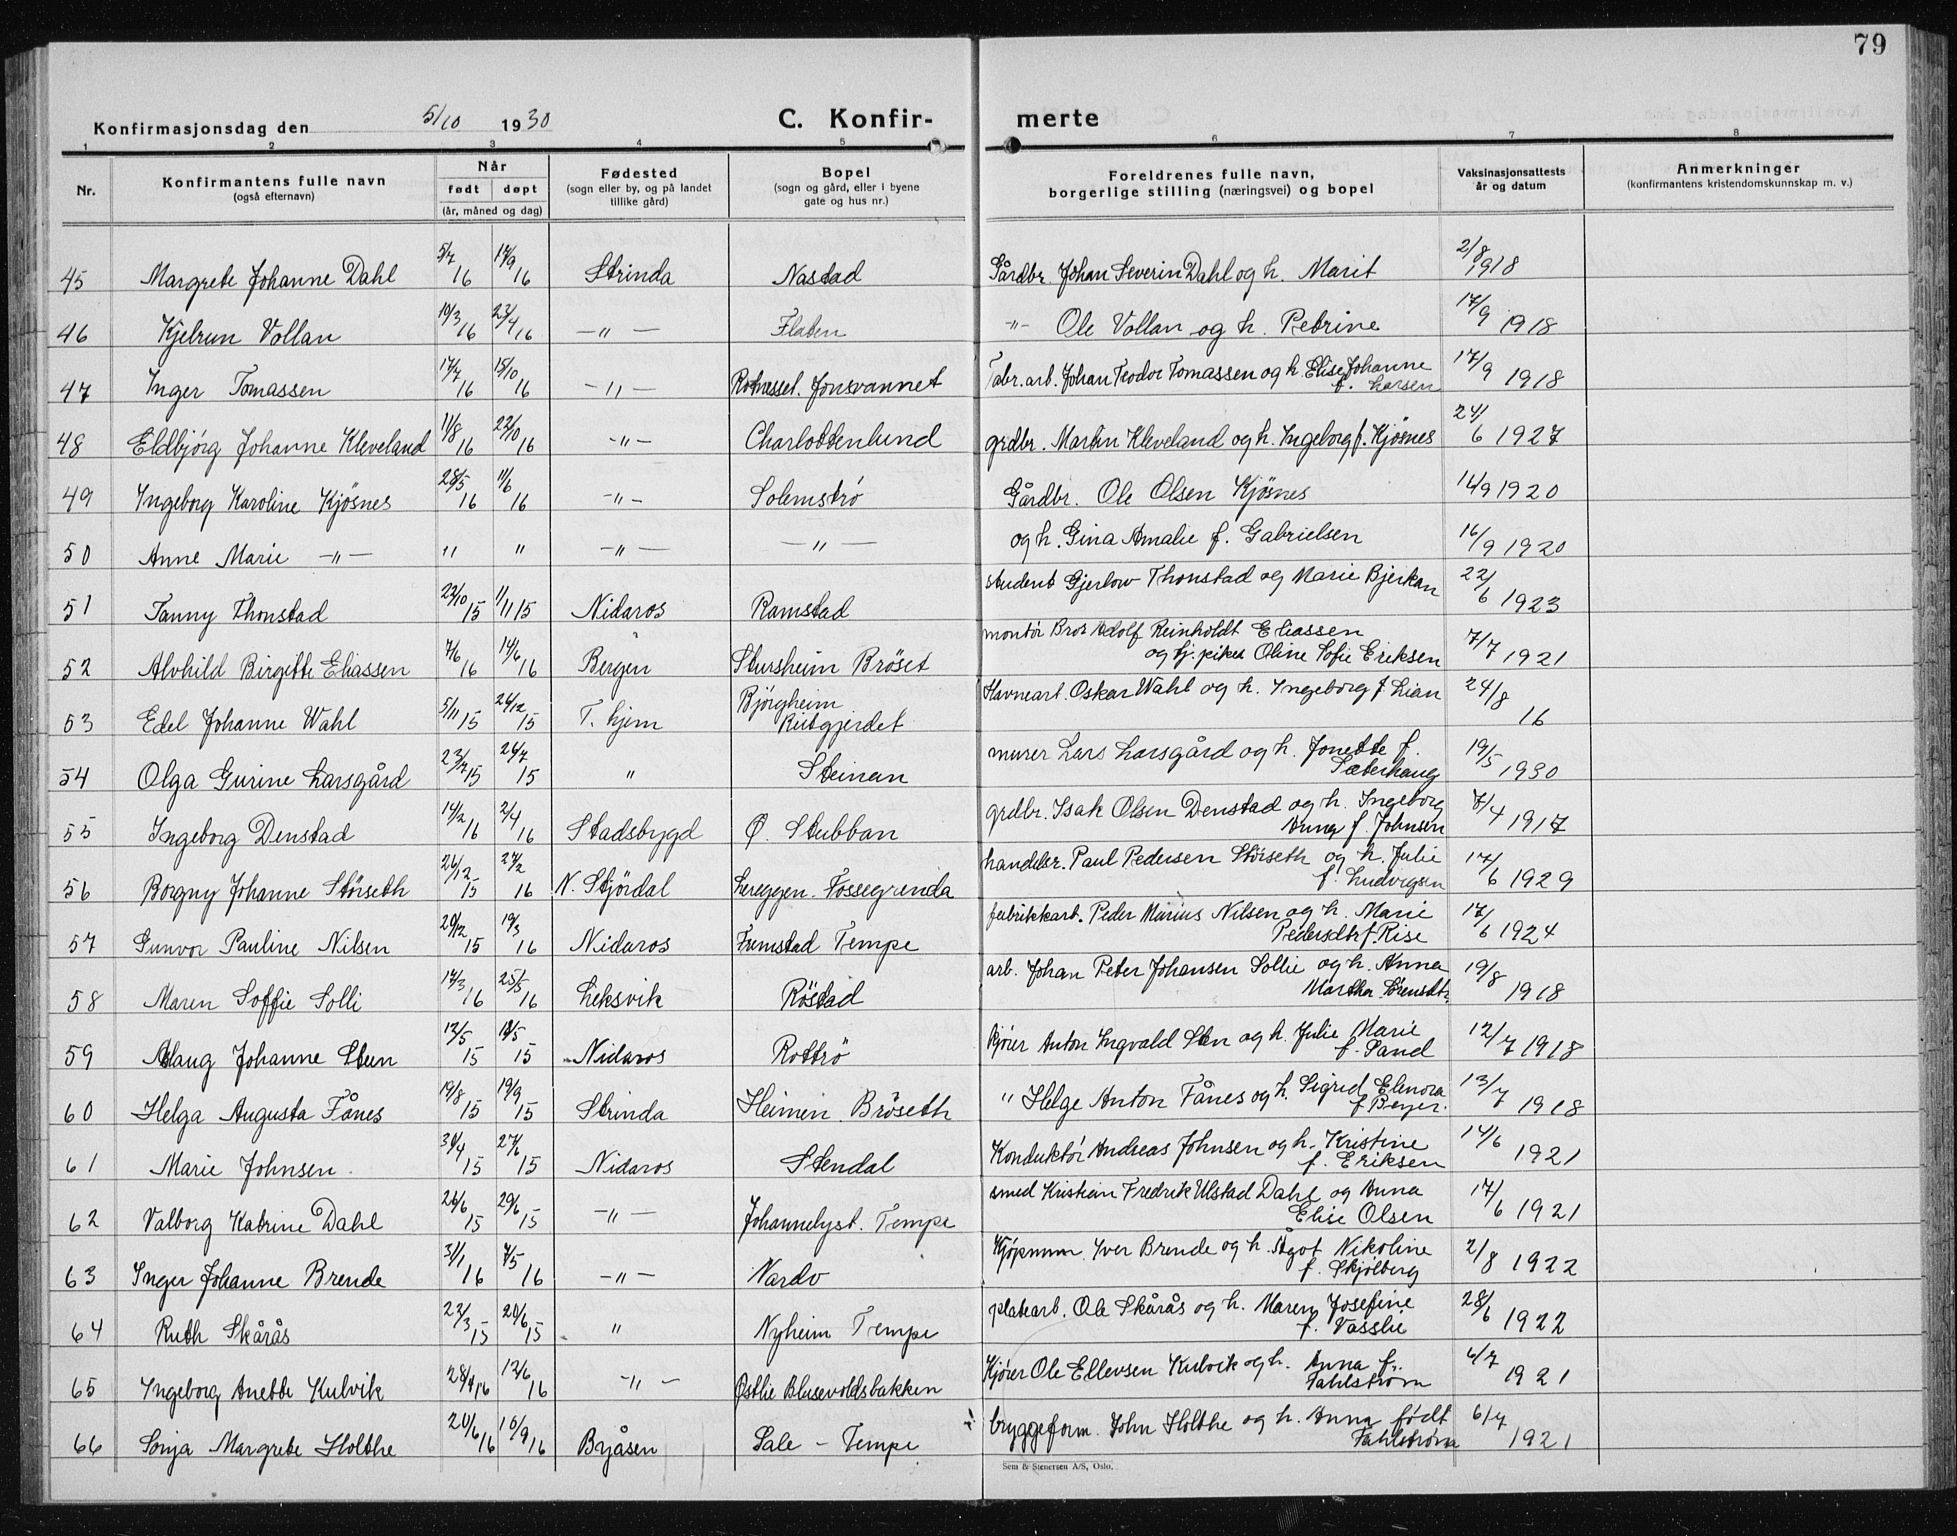 79
Konfirmasjonsdag den 5/10 1930 C. Konfir- merte
1 2 3 4 5 6 7 8
Nr. Konfirmantens fulle navn (også efternavn) Når født døpt (år, måned og dag) Fødested (sogn eller by, og på landet tillike gård) Bopel (sogn og gård, eller i byene gate og hus nr.) Foreldrenes fulle navn, borgerlige stilling (næringsvei) og bopel Vaksinasjonsattests år og datum Anmerkninger (konfirmantens kristendomskunnskap m. v.)
45 Margrete Johanne Dahl 5/7 16 17/9 16 Strinda Nastad Gårdbr. Johan Severin Dahl og h. Marit 2/8 1918
46 Kjelrun Vollan 10/3 16 23/4 16 —"— Flaten —"— Ole Vollan og h. Petrine 17/9 1918
47 Inger Tomassen 17/7 16 15/10 16 —"— Jonsvannet Fabr. arb. Johan Teodor Tomassen og h. Elise Johanne f. Larsen 17/9 1918
48 Eldbjørg Johanne Kleveland 11/8 16 22/10 16 —"— Charlottenlund grdbr. Martin Kleveland og h. Ingeborg f. Kjøsnes 24/6 1927
49 Ingeborg Karoline Kjøsnes 28/5 16 11/6 16 —"— Solemstrø Gårdbr. Ole Olsen Kjøsnes 14/9 1920
50 Anne Marie —"— " " —"— —"— og h. Gina Amalie f. Gabrielsen 16/9 1920
51 Fanny Thonstad 22/10 15 1/11 15 Nidaros Ramstad student Gjerlow Thonstad og Marie Bjerkan 22/6 1923
52 Alvhild Birgitte Eliassen 7/6 16 14/6 16 Bergen Stursheim Brøset montør Bror Adolf Reinholdt Eliassen og tj. pike Oline Sofie Eriksen 7/7 1921
53 Edel Johanne Wahl 5/11 15 26/12 15 T. hjem Bjørgheim Reitgjerdet Havnearb. Oskar Wahl og h. Ingeborg f. Lian 24/8 16
54 Olga Gurine Larsgård 23/7 15 26/7 15 " Steinan murer Lars Larsgård og h. Jonette f. Sæterhaug 19/5 1930
55 Ingeborg Denstad 14/2 16 2/4 16 Stadsbygd Ø. Stubban grdbr. Isak Olsen Denstad og h. Ingeborg Anna f. Johnsen 7/4 1917
56 Borgny Johanne Størseth 26/12 15 27/2 16 N. Stjørdal Lereggen. Fossegrenda handelsr. Paul Pedersen Størseth og h. Julie f. Ludvigsen 17/6 1929
57 Gunvor Pauline Nilsen 20/12 15 19/3 16 Nidaros Fremstad Tempe fabrikkarb. Peder Marius Nilsen og h. Marie Pedersdtr f. Rise 17/6 1924
58 Maren Soffie Solli 14/3 16 25/5 16 Leksvik Røstad arb. Johan Peter Johansen Sollie og h. Anna Martha Sørensdtr. 19/8 1918
59 Aslaug Johanne Steen 12/5 15 18/5 15 Nidaros Rottrø kjører Anton Ingvald Sten og h. Julie Marie f. Sand 12/7 1918
60 Helga Augusta Fånes 19/8 15 19/9 15 Strinda Heimen Brøseth " Helge Anton Fånes og h. Sigrid Elenora f. Beyer. 13/7 1918
61 Marie Johnsen 30/4 15 27/6 15 Nidaros Stendal Konduktør Andreas Johnsen og h. Kristine f. Eriksen 14/6 1921
62 Valborg Katrine Dahl 26/6 15 29/6 15 —"— Johannelyst. Tempe smed Kristian Fredrik Ulstad Dahl og Anna Elise Olsen 17/6 1921
63 Inger Johanne Brende 31/1 16 7/5 16 —"— Nardo Kjøpmann Iver Brende og h. Ågot Nikoline f. Skjølberg 2/8 1922
64 Ruth Skårås 22/3 15 20/6 15 " Nyheim Tempe platearb. Ole Skårås og h. Maren Josefine f. Vasslie 28/6 1922
65 Ingeborg Anette Kulvik 28/4 16 12/6 16 —"— Østlie Blusevoldsbakken Kjører Ole Ellevsen Kulvik og h. Anna f. Fahlstrøm 6/7 1921
66 Sonja Margrete Holthe 20/6 16 10/9 16 Byåsen Sale – Tempe bryggeform. John Holthe og h. Anna født Fahlstrøm 6/7 1921
Sem & Stenersen A/S, Oslo.